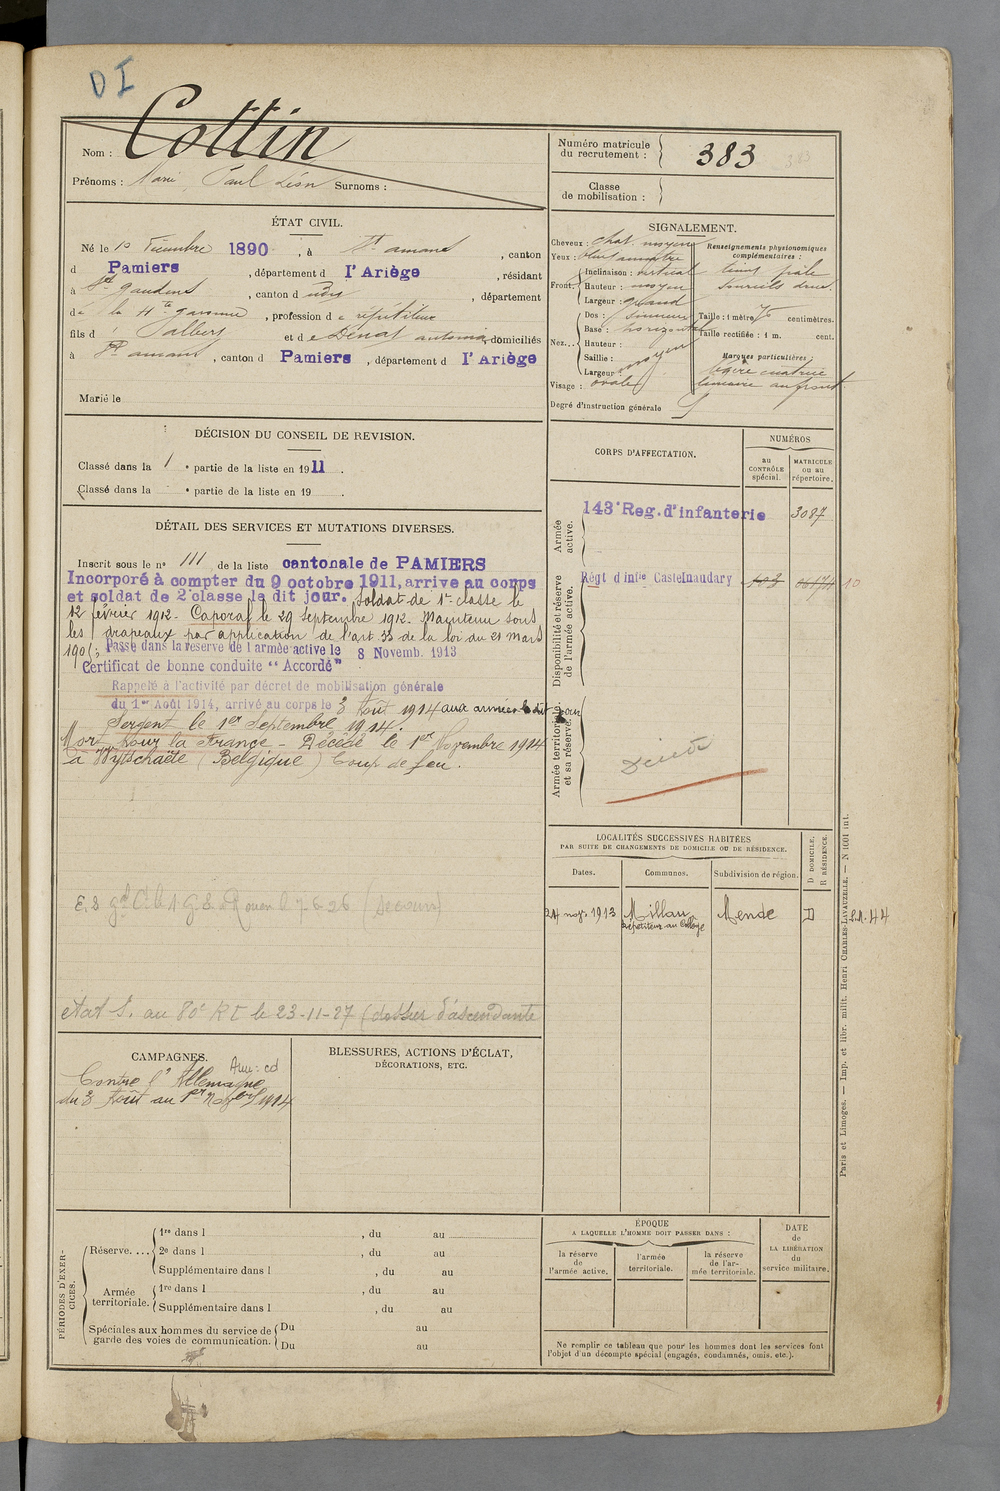 DI
Nom : Cottin
Prénoms : Marie, Paul Léon Surnoms :
Numéro matricule
du recrutement : 383
383
Classe
de mobilisation :
ÉTAT CIVIL.
Né le 10 Décembre 1890, à St amans, canton
d Pamiers, département d l'Ariège, résidant
à St Gaudens, canton d dudit, département
de la Hte garonne, profession de répétiteur
fils d' albert et de Dénat antonia, domiciliés
à St amans, canton d Pamiers, département d l'Ariège
Marié le
SIGNALEMENT.
Cheveux : chat. moyen
Yeux :
Front. Inclinaison : vertical
Hauteur : moyen
Largeur : grand
Nez... Dos : sinueux
Base : horizontal
Hauteur :
Saillie : moyen
Largeur :
Visage : ovale
Renseignements physionomiques
complémentaires :
teint pâle
sourcils drus.
Taille : 1 mètre 70 centimètres.
Taille rectifiée : 1 m. cent.
Marques particulières :
légère cicatrice
linéaire au front.
Degré d'instruction générale
DÉCISION DU CONSEIL DE REVISION.
Classé dans la 1e partie de la liste en 1911.
Classé dans la e partie de la liste en 19 .
DÉTAIL DES SERVICES ET MUTATIONS DIVERSES.
Inscrit sous le n° 111 de la liste cantonale de PAMIERS
Incorporé à compter du 9 octobre 1911, arrive au corps
et soldat de 2e classe le dit jour. Soldat de 1re classe le
12 février 1912. Caporal le 29 Septembre 1912. Maintenu sous
les drapeaux par application de l'art 33 de la loi du 21 mars
1905; Passé dans la réserve de l'armée active le 8 Novemb. 1913
Certificat de bonne conduite "Accordé"
Rappelé à l'activité par décret de mobilisation générale
du 1er Août 1914, arrivé au corps le 3 Août 1914 aux armées le dit jour
Sergent le 1er Septembre 1914.
Mort pour la France - Décédé le 1er Novembre 1914
à Wytschaëte (Belgique) Coup de feu.
Rouen l 7-6-26 (secours)
état S. au 80e RI le 23-11-27 (dossier d'ascendante
CORPS D'AFFECTATION.
NUMÉROS
au
CONTRÔLE
spécial.
MATRICULE
ou au
répertoire.
Armée
active.
143e Reg. d'infanterie 3087
Disponibilité et réserve
de l'armée active.
Régt d'infie Castelnaudary
10
Armée territoriale
et sa réserve.
Décédé
LOCALITÉS SUCCESSIVES HABITÉES
PAR SUITE DE CHANGEMENTS DE DOMICILE OU DE RÉSIDENCE.
D DOMICILE.
R RÉSIDENCE.
Dates. Communes. Subdivision de région.
24 nov. 1913 Millau Mende R
Répétiteur au Collège
CAMPAGNES.
Contre l'Allemagne
du 3 Août au 1er Novbre 1914
BLESSURES, ACTIONS D'ÉCLAT,
DÉCORATIONS, ETC.
PÉRIODES D'EXERCICES.
Réserve.... 1re dans l , du au
2e dans l , du au
Supplémentaire dans l , du au
Armée
territoriale. 1re dans l , du au
Supplémentaire dans l , du au
Spéciales aux hommes du service de
garde des voies de communication. Du au
Du au
ÉPOQUE
A LAQUELLE L'HOMME DOIT PASSER DANS :
la réserve
de
l'armée active.
l'armée
territoriale.
la réserve
de l'ar-
mée territoriale.
DATE
de
LA LIBÉRATION
du
service militaire.
Ne remplir ce tableau que pour les hommes dont les services font
l'objet d'un décompte spécial (engagés, condamnés, omis, etc.).
Paris et Limoges. — Imp. et libr. milit. Henri CHARLES-LAVAUZELLE. — N 1001 int.